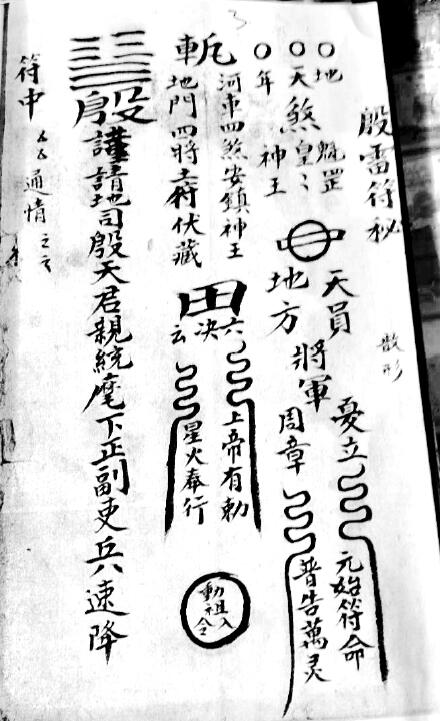 殷雷符秘
散形
〇地魁罡
〇天煞皇〻
〇年神王
天員
地方
將軍
憂立
周章
元始符命
普告萬灵
河車四煞安鎮神王
地門四將土府伏藏
田
六
決
云
上帝有勅
星火奉行
動祖入令
殷
謹請地司殷天君親統麾下正副吏兵火速降
符中
通情